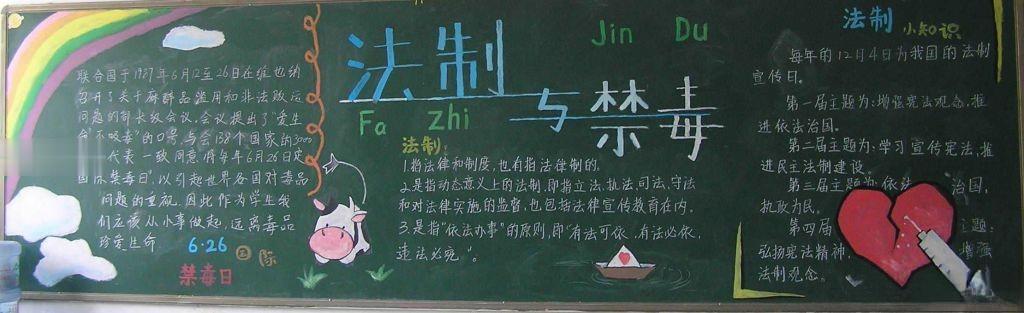 联合国于1987年6月12至26日在维也纳
召开了关于麻醉品滥用和非法贩运
问题的部长级会议,会议提出了"爱生
命不吸毒"的口号,与会138个国家的3000
代表一致同意将每年6月26日定
国际禁毒日",以引起世界各国对毒品
问题的重视,因此作为学生我
们应该从小事做起,远离毒品
珍爱生命
6·26
国际
禁毒日
法制
与
禁毒
Fa zhi
Jin Du
法制:
1.指法律和制度,也有指法律制的。
2.是指动态意义上的法制,即指立法、执法、司法、守法
和对法律实施的监督,也包括法律宣传教育在内。
3.是指"依法办事"的原则,即"有法可依,有法必依,
违法必究"。
法制
小知识
每年的12月4日为我国的法制
宣传日。
第一届主题为:增强宪法观念,推
进依法治国。
第二届主题为:学习宣传宪法,推
进民主法制建设。
第三届主题为:依法 治国,
执政为民。
第四届 主题:
弘扬宪法精神, 增强
法制观念。